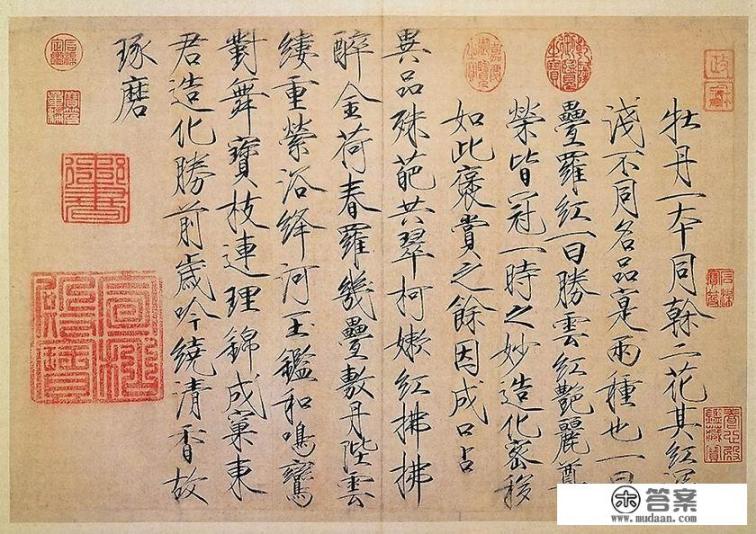 牡丹一本同幹二花其紅深
淺不同名品寔兩種也一曰
疊羅紅一曰勝雲紅艷麗尊
榮皆冠一時之妙造化密移
如此褒賞之餘因成口占
異品殊葩共翠柯嫩紅拂拂
醉金荷春羅幾疊敷丹陛雲
縷重縈浴絳河玉鑑和鳴鸞
對舞寶枝連理錦成窠東
君造化勝前歲吟繞清香故
琢磨
答案
www.mudaan.com